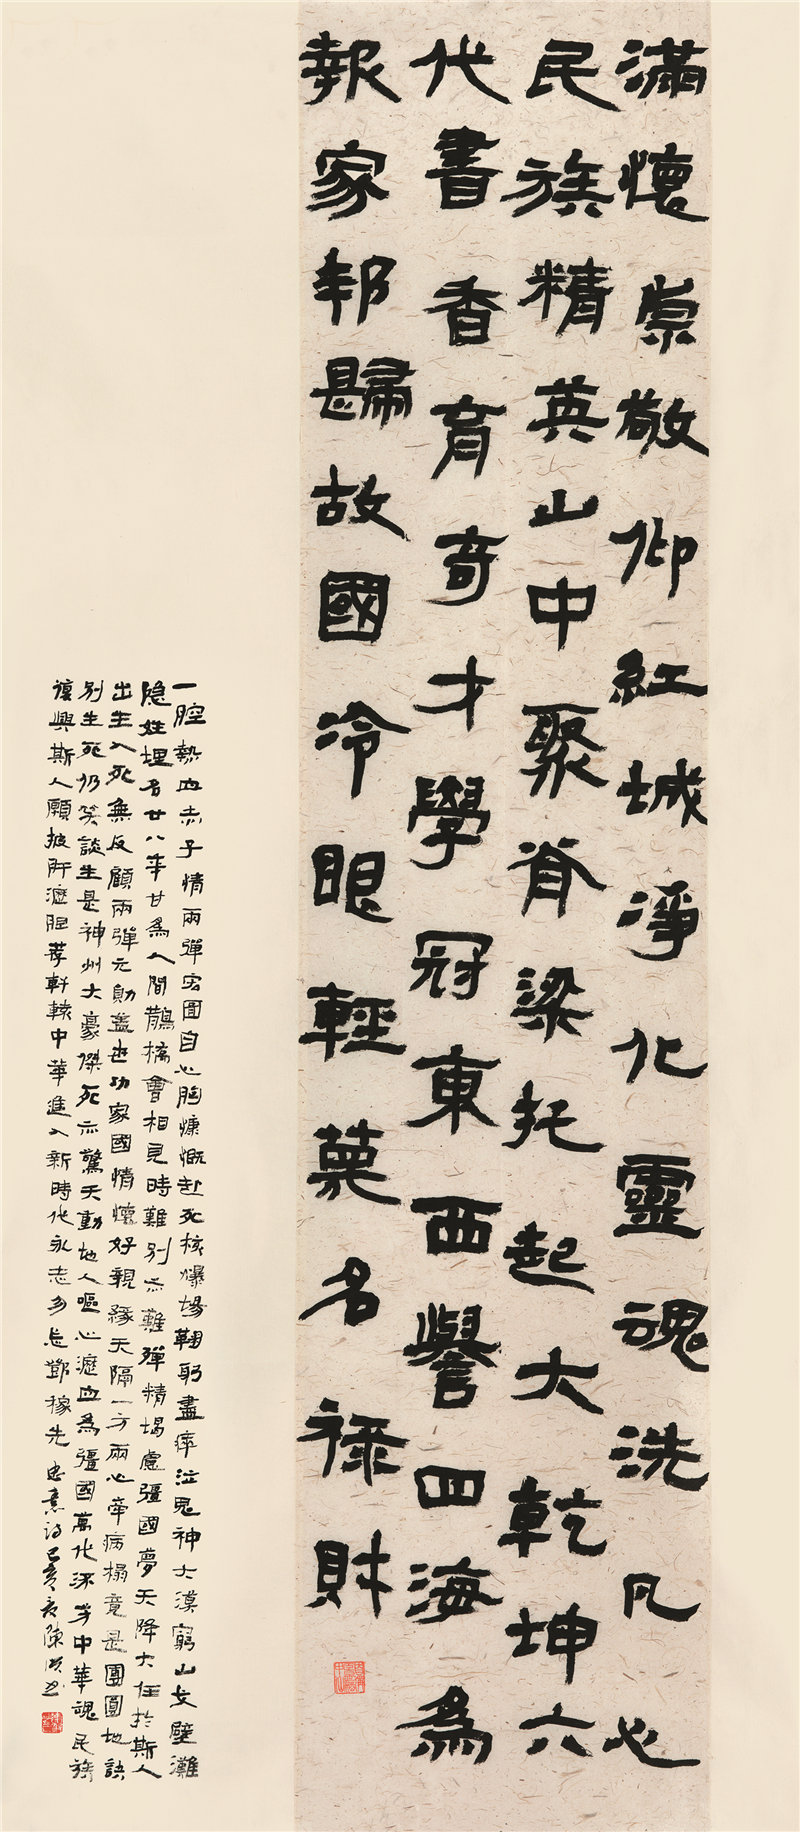 滿懷崇敬仰紅城淨化靈魂洗凡心
民族精英山中聚脊梁托起大乾坤六
代書香育奇才學冠東西譽四海為
報家邦歸故國冷眼輕蔑名祿財
一腔熱血赤子情兩彈宏圖自心胸慷慨赴死核爆場鞠躬盡瘁泣鬼神大漠窮山戈壁灘
隐姓埋名廿八年甘為人間鵲橋會相見時難別亦難殫精竭慮彊國夢天降大任於斯人
出生入死無反顧兩彈元勛蓋世功家國情懷好親緣天隔一方兩心牽病榻竟是團圓地訣
別生死仍笑談生是神州大豪傑死亦驚天動地人嘔心瀝血為彊國萬代流芳中華魂民族
復興斯人願披肝瀝胆荐軒轅中華進入新時代永志勿忘鄧稼先 忠意詩己亥夏陳洪書